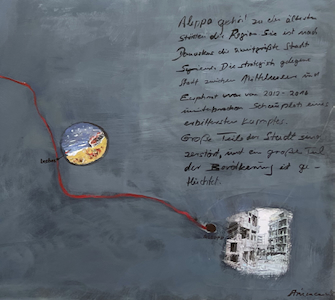 Aleppo gehört zu den ältesten
Städten der Region Sie ist nach
Damaskus die zweitgrößte Stadt
Syriens. Die strategisch gelegene
Stadt zwischen Mittelmeer und
Euphrat war von 2012-2016
Schauplatz eines
erbitterten Kampfes.
Große Teile der Stadt sind
zerstört, und ein großer Teil
der Bevölkerung ist ge-
flüchtet.